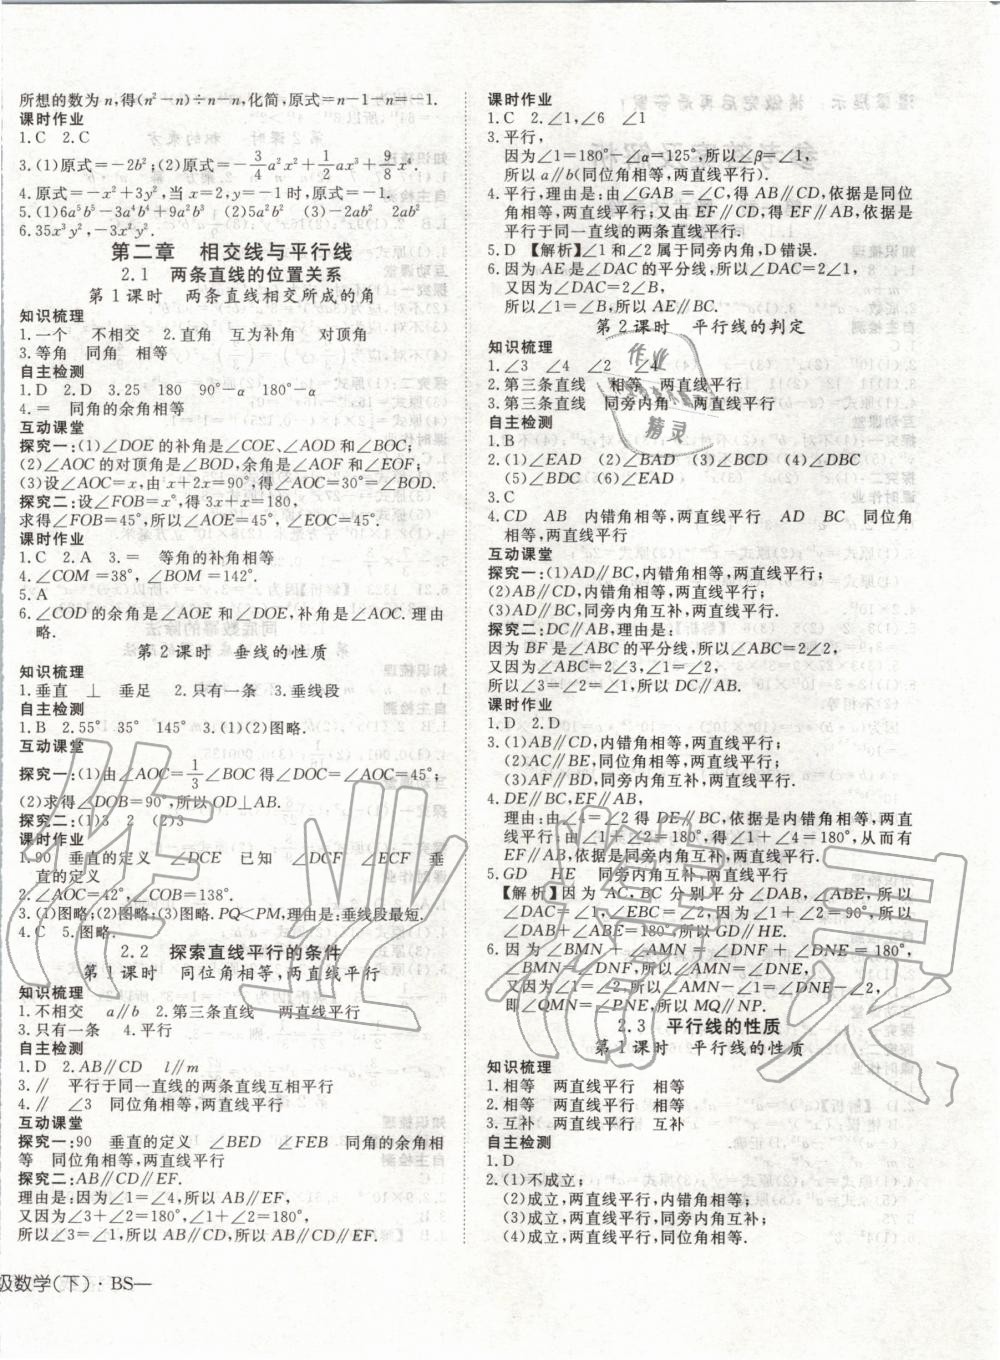 所想的数为n,得(n²-n)÷n-n,化简,原式=n-1-n=-1.
课时作业
1.C 2.C
3.(1)原式=-2b²;(2)原式=-3/4a²x²+1/2ax³+9/8x⁴.
4.原式=-x²+3y²,当x=2,y=-1时,原式=-1.
5.(1)6a⁵b⁵-3a⁴b⁴+9a²b³ (2)2ab² (3)-2ab² 2ab²
6.35x³y²,-3x²y³.
第二章 相交线与平行线
2.1 两条直线的位置关系
第1课时 两条直线相交所成的角
知识梳理
1.一个 不相交 2.直角 互为补角 对顶角
3.等角 同角 相等
自主检测
1.D 2.D 3.25 180 90°-α 180°-α
4.= 同角的余角相等
互动课堂
探究一:(1)∠DOE的补角是∠COE、∠AOD和∠BOC;
(2)∠AOC的对顶角是∠BOD,余角是∠AOF和∠EOF;
(3)设∠AOC=x,由x+2x=90°,得∠AOC=30°=∠BOD.
探究二:设∠FOB=x°,得3x+x=180,
求得∠FOB=45°,所以∠AOE=45°,∠EOC=45°.
课时作业
1.C 2.A 3.= 等角的补角相等
4.∠COM=38°,∠BOM=142°.
5.A
6.∠COD的余角是∠AOE和∠DOE,补角是∠AOC.理由
略.
第2课时 垂线的性质
知识梳理
1.垂直 ⊥ 垂足 2.只有一条 3.垂线段
自主检测
1.B 2.55° 35° 145° 3.(1)(2)图略.
互动课堂
探究一:(1)由∠AOC=1/3∠BOC得∠DOC=∠AOC=45°;
(2)求得∠DOB=90°,所以OD⊥AB.
探究二:(1)3 2 (2)3
课时作业
1.90 垂直的定义 ∠DCE 已知 ∠DCF ∠ECF 垂
直的定义
2.∠AOC=42°,∠COB=138°.
3.(1)图略;(2)图略;(3)图略.PQ<PM,理由是:垂线段最短.
4.C 5.图略.
2.2 探索直线平行的条件
第1课时 同位角相等,两直线平行
知识梳理
1.不相交 a∥b 2.第三条直线 两直线平行
3.只有一条 4.平行
自主检测
1.D 2.AB∥CD l∥m
3.∥ 平行于同一直线的两条直线互相平行
4.∥ ∠3 同位角相等,两直线平行
互动课堂
探究一:90 垂直的定义 ∠BED ∠FEB 同角的余角相
等 同位角相等,两直线平行
探究二:AB∥CD∥EF.
理由是:因为∠1=∠4,所以AB∥EF.
又因为∠3+∠2=180°,∠1+∠2=180°,
所以∠3=∠1,所以AB∥CD,所以AB∥CD∥EF.
级数学(下)·BS—
课时作业
1.C 2.∠1,∠6 ∠1
3.平行.
因为∠1=180°-∠α=125°,所以∠β=∠1,
所以a∥b(同位角相等,两直线平行).
4.平行,理由是:由∠GAB=∠C,得AB∥CD,依据是同位
角相等,两直线平行;又由EF∥CD,得AB∥EF,依据是
平行于同一直线的两条直线平行.
5.D 【解析】∠1和∠2属于同旁内角,D错误.
6.因为AE是∠DAC的平分线,所以∠DAC=2∠1,
又因为∠DAC=2∠B,
所以∠1=∠B,所以AE∥BC.
第2课时 平行线的判定
知识梳理
1.∠3 ∠4 ∠2 ∠4
2.第三条直线 相等 两直线平行
3.第三条直线 同旁内角 两直线平行
自主检测
1.B
2.(1)∠EAD (2)∠BAD (3)∠BCD (4)∠DBC
(5)∠BDC (6)∠EAD
3.C
4.CD AB 内错角相等,两直线平行 AD BC 同位角
相等,两直线平行
互动课堂
探究一:(1)AD∥BC,内错角相等,两直线平行;
(2)AB∥CD,内错角相等,两直线平行;
(3)AD∥BC,同旁内角互补,两直线平行;
探究二:DC∥AB,理由是:
因为BF是∠ABC的平分线,所以∠ABC=2∠2,
又因为∠ABC=2∠3,∠1=∠2,
所以∠3=∠2=∠1,所以DC∥AB.
课时作业
1.D 2.D
3.(1)AB∥CD,内错角相等,两直线平行;
(2)AC∥BE,同位角相等,两直线平行;
(3)AF∥BD,同旁内角互补,两直线平行.
4.DE∥BC,EF∥AB.
理由:由∠4=∠2得DE∥BC,依据是内错角相等,两直
线平行;由∠1+∠2=180°,得∠1+∠4=180°,从而有
EF∥AB,依据是同旁内角互补,两直线平行.
5.GD HE 同旁内角互补,两直线平行
【解析】因为AC,BC分别平分∠DAB,∠ABE,所以
∠DAC=∠1,∠EBC=∠2,因为∠1+∠2=90°,所以
∠DAB+∠ABE=180°,所以GD∥HE.
6.因为∠BMN+∠AMN=∠DNF+∠DNE=180°,
∠BMN=∠DNF,所以∠AMN=∠DNE,
又因为∠1=∠2,所以∠AMN-∠1=∠DNE-∠2,
即∠QMN=∠PNE,所以MQ∥NP.
2.3 平行线的性质
第1课时 平行线的性质
知识梳理
1.相等 两直线平行 相等
2.相等 两直线平行 相等
3.互补 两直线平行 互补
自主检测
1.D
2.(1)不成立;
(2)成立,两直线平行,内错角相等;
(3)成立,两直线平行,同旁内角互补;
(4)成立,两直线平行,同位角相等.
作业
精灵
作业精灵